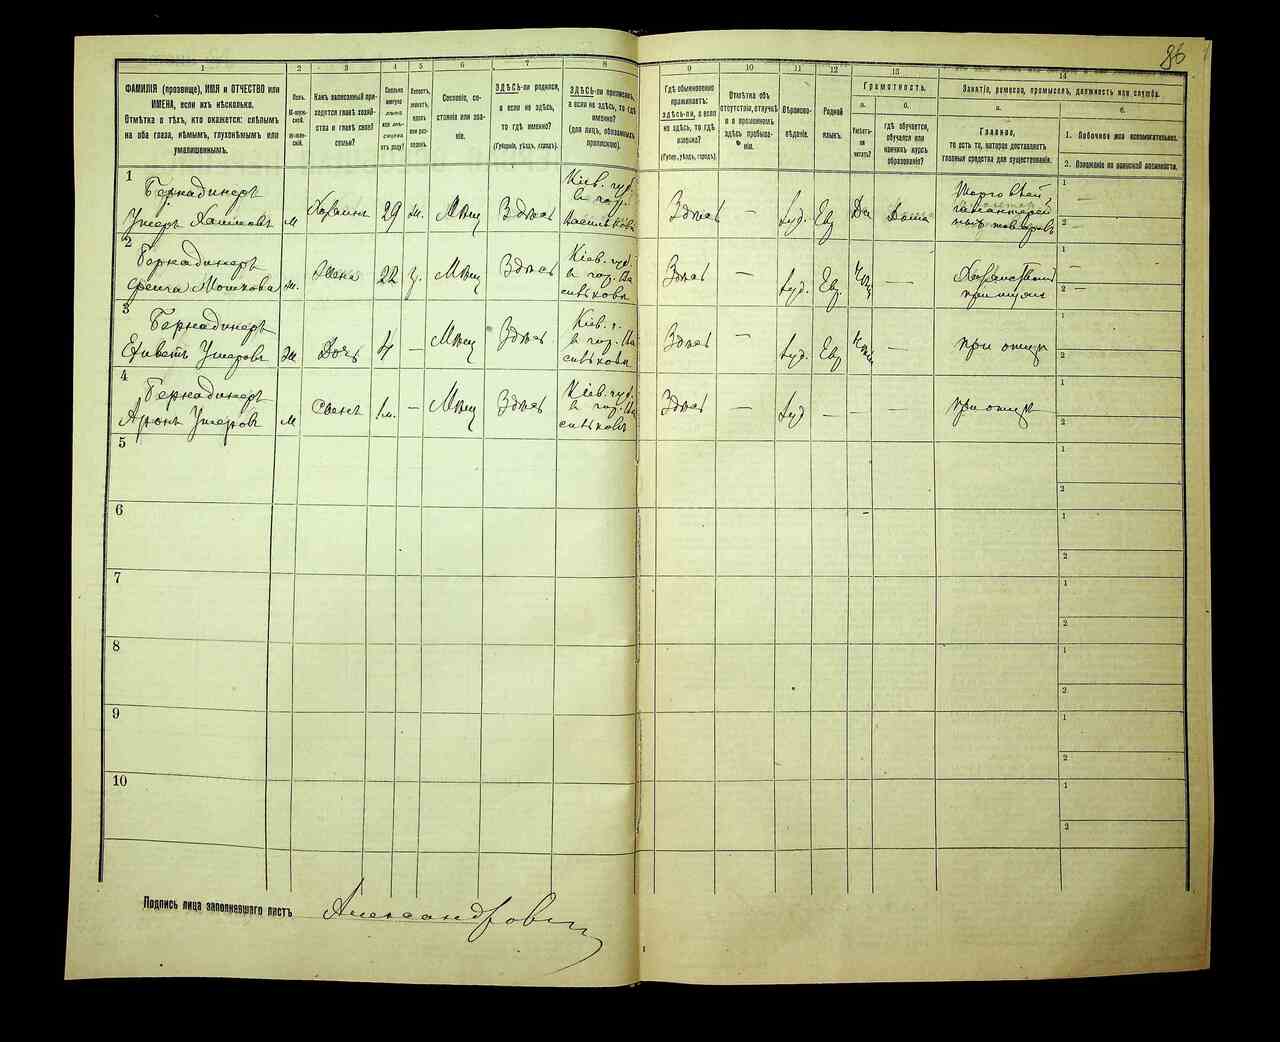 86
1
2
3
4
5
6
7
8
9
10
11
12
13
14
ФАМИЛІЯ (прозвище), ИМЯ и ОТЧЕСТВО или
ИМЕНА, если ихъ нѣсколько.
Отмѣтка о тѣхъ, кто окажется: слѣпымъ
на оба глаза, нѣмымъ, глухонѣмымъ или
умалишеннымъ.
Полъ.
Какъ записанный при-
ходится главѣ хозяй-
ства и главѣ своей
семьи?
Сословіе, со-
стояніе или зва-
ніе.
ЗДѢСЬ-ли родился,
а если не здѣсь,
то гдѣ именно?
(Губернія, уѣздъ, городъ).
ЗДѢСЬ-ли приписанъ,
а если не здѣсь, то гдѣ
именно?
(для лицъ, обязанныхъ
припискою).
Гдѣ обыкновенно
проживаетъ:
здѣсь-ли, а если
не здѣсь, то гдѣ
именно?
(Губер., уѣздъ, городъ).
Отмѣтка объ
отсутствіи, отлучкѣ
и о временномъ
здѣсь пребыва-
ніи.
Вѣроиспо-
вѣданіе.
Родной
языкъ.
Грамотность.
а.
б.
Умѣетъ-
ли
читать?
гдѣ обучается,
обучался или
кончилъ курсъ
образованія?
Занятіе, ремесло, промыселъ, должность или служба.
а.
б.
Главное,
то есть то, которое доставляетъ
главныя средства для существованія.
1. Побочное или вспомогательное.
2. Положеніе по воинской повинности.
1
Бернадинеръ
Умеръ Хаимовъ
м
Хозяинъ
29
ж.
Мѣщ
Здѣсь
Кіев. губ.
в гор.
Васильковѣ
Здѣсь
—
Іуд.
Евр
Да
Дома
1
—
2
—
2
Бернадинеръ
Фейга Мошкова
ж.
Жена
22
з.
Мѣщ
Здѣсь
Кіев. губ.
в гор. Ва
сильковѣ
Здѣсь
—
Іуд.
Евр.
—
1
—
2
—
3
Бернадинеръ
Умеровъ
ж
Дочь
4
—
Мѣщ
Здѣсь
Кіев. г.
в гор. Ва
сильковѣ
Здѣсь
—
Іуд.
Евр
—
при отцѣ
1
2
4
Бернадинеръ
Аронъ Умеровъ
м
Сынъ
1м.
—
Мѣщ
Здѣсь
Кіев. губ.
в гор. Ва
сильковѣ
Здѣсь
—
Іуд
—
—
при отцѣ
1
2
5
1
2
6
1
2
7
1
2
8
1
2
9
1
2
10
1
2
Подпись лица заполнявшаго листъ